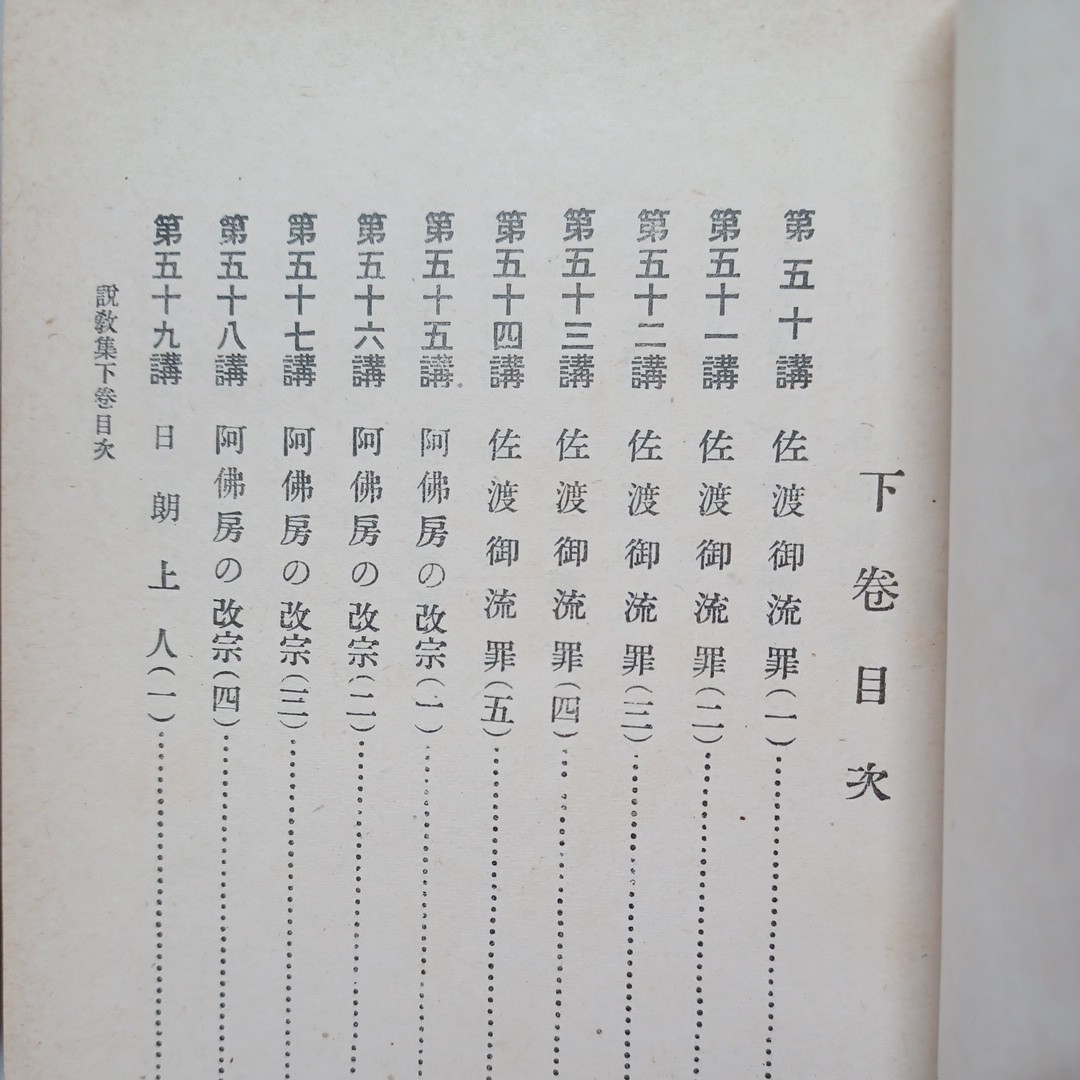 下卷目次
第五十講 佐渡御流罪(一)
第五十一講 佐渡御流罪(二)
第五十二講 佐渡御流罪(三)
第五十三講 佐渡御流罪(四)
第五十四講 佐渡御流罪(五)
第五十五講 阿佛房の改宗(一)
第五十六講 阿佛房の改宗(二)
第五十七講 阿佛房の改宗(三)
第五十八講 阿佛房の改宗(四)
第五十九講 日朗上人(一)
說敎集下卷目次